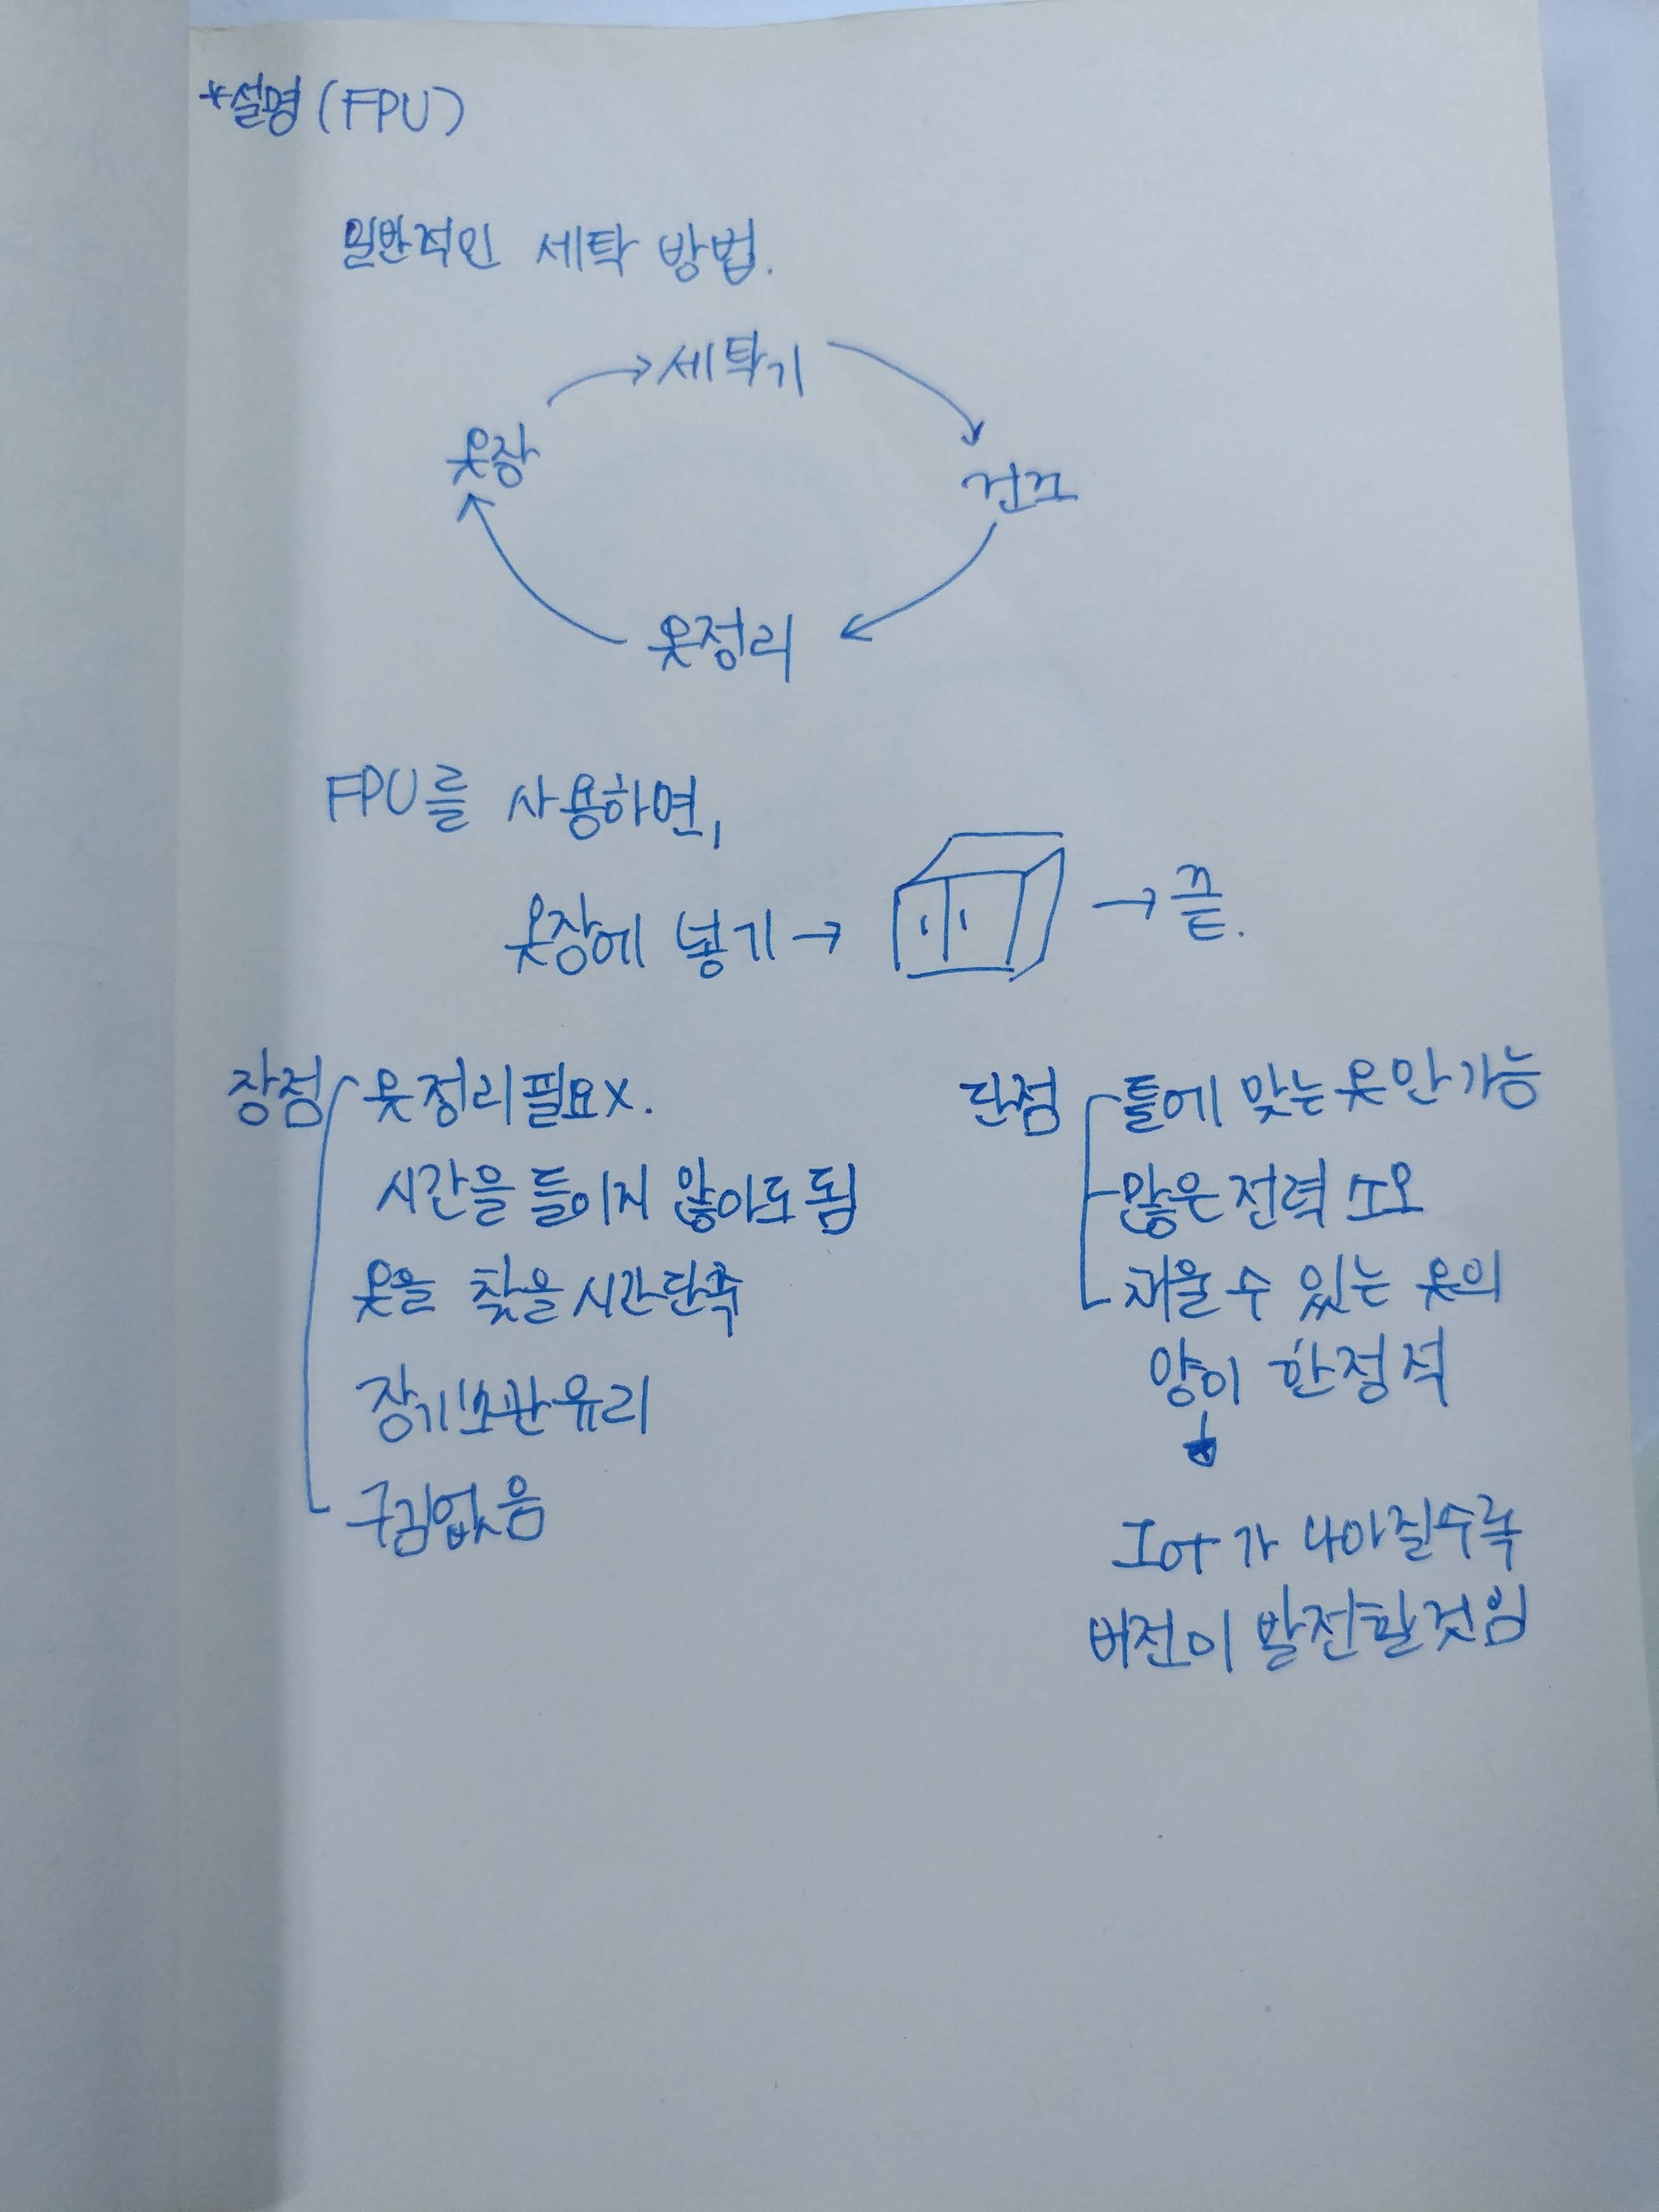 *설명(FPU)
일반적인 세탁 방법.
→세탁기
옷장
건조
옷정리
FPU를 사용하면,
옷장에 넣기→ → 끝.
장점 옷정리필요x.
시간을 들이지 않아도 됨
옷을 찾을 시간단축
장기보관유리
구김없음
단점 틀에 맞는 옷만가능
많은 전력 소모
채울 수 있는 옷의
양이 한정적
IoT가 나아질수록
버전이 발전할것임